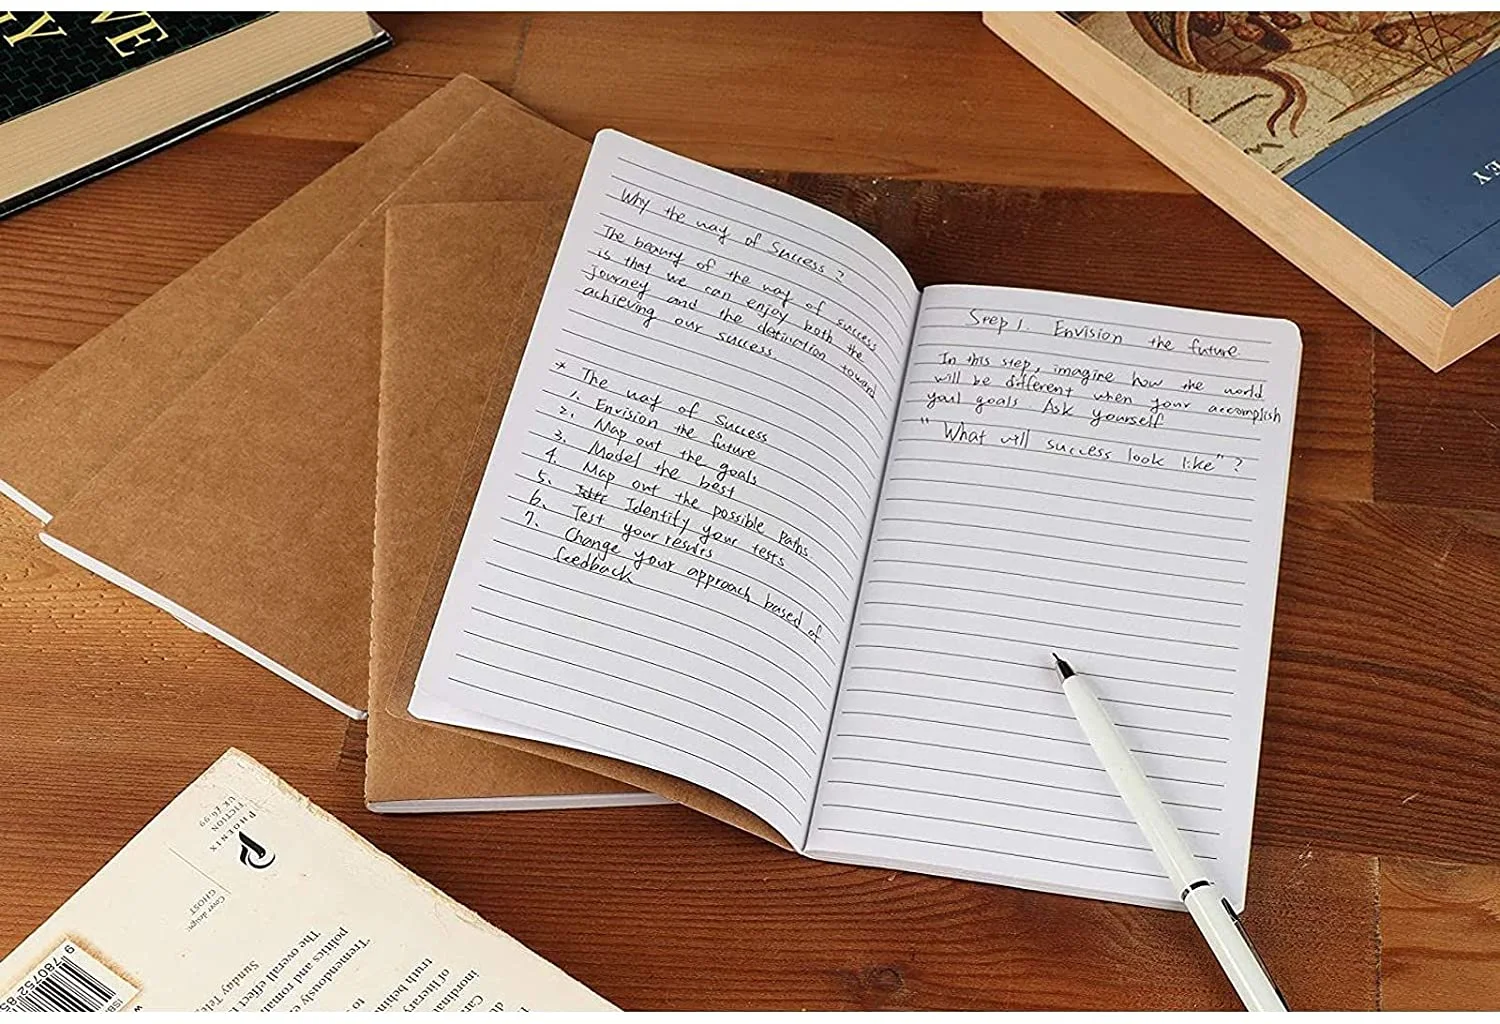 VE
Y
EY
Why the way of Success?
The beauty of the way of success
is that we can enjoy both the
journey and the destinction toward
achieving our success
* The way of Success
1. Envision the future
2. Map out the goals
3. Model the best
4. Map out the possible paths
5. Identify your tests
6. Test your results
7. Change your approach based of
feedback
Step 1. Envision the future
In this step, imagine how the world
will be different when your accomplish
your goals Ask yourself
"What will success look like"?
PHOENIX
FICTION
UK £6.99
Cover design:
GHOST
"Tremendously
politics and
The overall effect
Sunday
truth
of literary
9 780752
ISBN